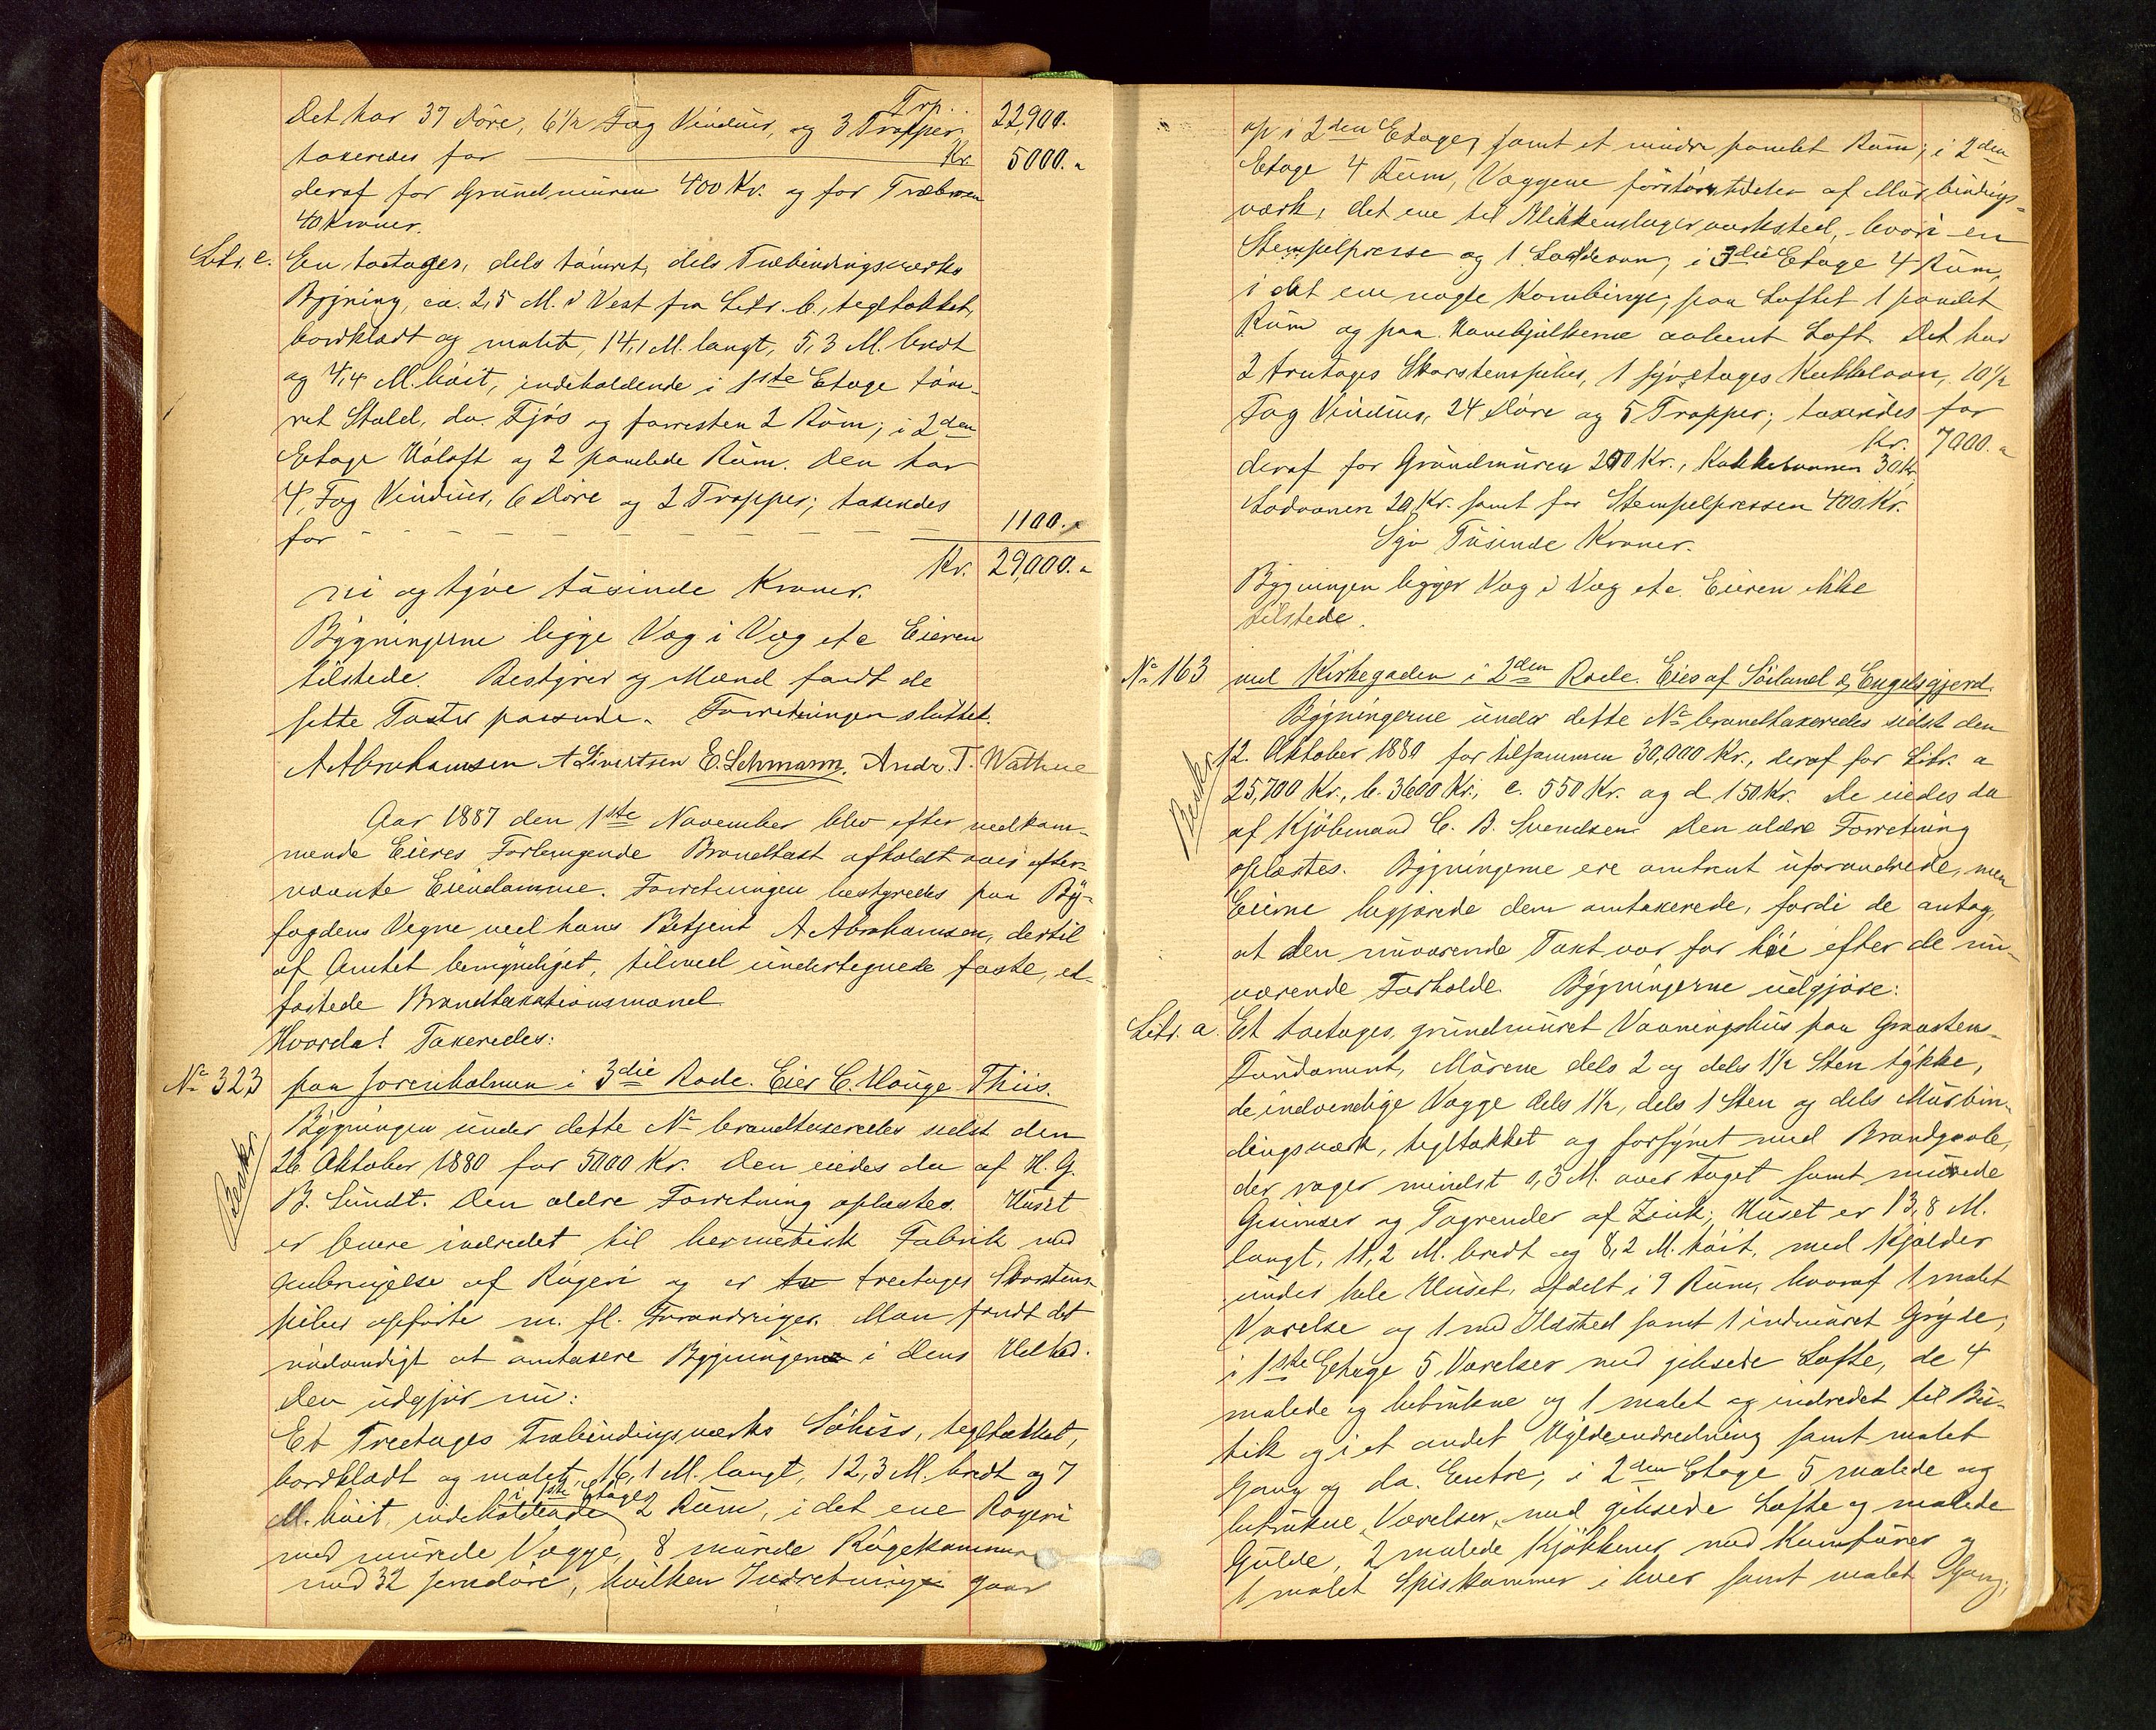 Trp. 22,900.
Det har 37 Döre, 6½ Fag Vinduer, og 3 Trapper
taxeredes for Kr. 5000.„
deraf for Grundmuren 400 Kr. og for Træbroen
40 Kroner.
Litr. c. En toetages, dels tömret, dels Træbindingsværks
Bygning, ca. 2,5 M. i Vest fra Litr. b., tegltækket,
bordklædt og malet, 14,1 M. langt, 5,3 M. bredt
og 4,4 M. höit, indeholdende i 1ste Etage töm-
ret Stald, do. Fjös og forresten 2 Rum; i 2den
Etage Höloft og 2 panelede Rum. Den har
4 Fag Vinduer, 6 Döre og 2 Trapper; taxeredes
for 1100.„
Kr. 29,000.„
ni og tyve tusinde Kroner.
Bygningerne ligge Væg i Væg etc Eieren
tilstede. Bestyrer og Mænd fandt de
satte Taxter passende. Forretningen sluttet.
A Abrahamsen A Sivertsen E. Lehmann. Andr. T. Wathne
Aar 1887 den 1ste November blev efter vedkom-
mende Eieres Forlangende Brandtaxt afholdt over efter-
nævnte Eiendomme. Forretningen bestyredes paa By-
fogdens Vegne ved hans Betjent A Abrahamsen, dertil
af Amtet bemyndiget, tilmed undertegnede faste, ed-
fæstede Brandtaxationsmænd
Hvorda! Taxeredes:
No 323 paa Jorenholmen i 3die Rode. Eier C. Houge Thiis.
Beskr.
Bygningen under dette No brandtaxeredes sidst den
26 Oktober 1880 for 5000 Kr. Den eiedes da af H. G.
B. Sundt. Den ældre Forretning oplæstes. Huset
er senere indredet til hermetisk Fabrik med
Anbringelse af Rögeri og er to treetages Skorstens-
piber opförte m. fl. Forandringer. Man fandt det
nödvendigt at omtaxere Bygningen i dens Helhed.
Den udgjör nu:
Et Treetages Træbindingsværks Söhus, tegltækket,
bordklædt og malet, 16,1 M. langt, 12,3 M. bredt og 7
M. höit, indeholdende i 1ste Etage 2 Rum, i det ene Rögeri
med murede Vægge, 8 murede Rögekammere
med 32 Jerndöre, hvilken Indretning gaar
op i 2den Etage, samt et mindre panelet Rum; i 2den
Etage 4 Rum, Væggene for störstedelen af Murbindings-
værk, det ene til Blikkenslagerværksted, hvori en
Stempelpresse og 1 Loddeovn; i 3die Etage 4 Rum,
i det ene nogle Kornbinge; paa Loftet 1 panelet
Rum og paa Hanebjælkerne aabent Loft. Det har
2 treetages Skorstenspiber, 1 Kakkelovn, 10½
Fag Vinduer, 24 Döre og 5 Trapper; taxeredes for
Kr. 7000.„
deraf for Grundmuren 200 Kr., Kakkelovnen 30 Kr,
Lodovnen 20 Kr. samt for Stempelpressen 400 Kr.
Syv Tusinde Kroner.
Bygningen ligger Væg i Væg etc. Eieren ikke
tilstede.
No 163 ved Kirkegaden i 2den Rode. Eies af Söiland & Engelsgjerd.
Beskr.
Bygningerne under dette No brandtaxeredes sidst den
12. Oktober 1880 for tilsammen 30,000 Kr., deraf for Litr. a
25,700 Kr., b. 3600 Kr., c. 550 Kr. og d 150 Kr. De eiedes da
af Kjöbmand C. B. Svendsen. Den ældre Forretning
oplæstes. Bygningerne ere omtrent uforandrede, men
Eierne begjærede dem omtaxerede, fordi de antog,
at den nuværende Taxt var for höi efter de nu-
værende Forholde. Bygningerne udgjöre:
Litr. a. Et toetages, grundmuret Vaaningshus paa Graastens-
Fundament, Murene dels 2 og dels 1½ Sten tykke,
de indvendige Vægge dels 1½, dels 1 Sten og dels Murbin-
dingsværk, tegltækket og forsynet med Brandgavle,
der rager mindst 0,3 M. over Taget samt murede
Gesimser og Tagrender af Zink; Huset er 13,8 M.
langt, 11,2 M. bredt og 8,2 M. höit, med Kjælder
under hele Huset, afdelt i 9 Rum, hvoraf 1 malet
Værelse og 1 med Ildsted samt 1 indmuret Gryde;
i 1ste Etage 5 Værelser med gibsede Lofte, de 4
malede og betrukne og 1 malet og indredet til Bu-
tik og i et andet Hyldeindredning samt malet
Gang og do. Entre; i 2den Etage 5 malede og
betrukne Værelser, med gibsede Lofte og malede
Gulde, 2 malede Kjökkener med Komfurer og
1 malet Spiskammer i hver samt malet Gang;